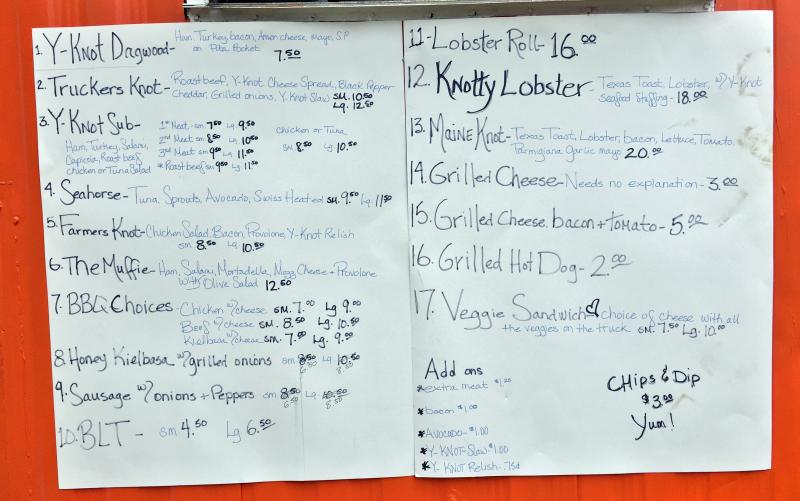 1. Y-Knot Dagwood- Ham, Turkey, bacon, Amer. cheese, mayo, S.P
on Pita Pocket 7.50
2. Truckers Knot- Roast beef, Y-Knot Cheese Spread, Black Pepper
Cheddar, Grilled onions, Y Knot Slaw SM. 10.50
Lg. 12.50
3. Y-Knot Sub- 1st Meat- sm 7.50 Lg 9.50
Ham, Turkey, Salami, 2nd Meat sm 8.50 Lg 10.50
Capicola, Roast beef 3rd Meat sm 9.50 Lg 11.50
chicken or Tuna Salad * Roast beef sm 9.50 Lg 11.50
chicken or Tuna
sm 8.50 Lg 10.50
4. Seahorse- Tuna, Sprouts, Avocado, Swiss Heated sm. 9.50 Lg. 11.50
5. Farmers Knot- Chicken Salad, Bacon, Provolone, Y-Knot Relish
sm 8.50 Lg 10.50
6. The Muffie- Ham, Salami, Mortadella, Mozz Cheese + Provolone
with Olive Salad 12.50
7. BBQ Choices- Chicken w/cheese SM. 7.00 Lg 9.00
Beef w/cheese SM. 8.50 Lg. 10.50
Kielbasa w/cheese SM. 7.00 Lg. 9.00
8. Honey Kielbasa w/grilled onions sm 8.50 Lg 10.50
6.50 8.50
9. Sausage w/onions + Peppers sm 8.50 Lg 10.50
6.50 8.50
10. BLT- sm 4.50 Lg 6.50
11-Lobster Roll- 16.00
12. Knotty Lobster- Texas Toast, Lobster, w/Y-Knot
Seafood Stuffing- 18.00
13. Maine Knot- Texas Toast, Lobster, bacon, Lettuce, Tomato,
Parmigiana Garlic mayo 20.00
14. Grilled Cheese- Needs no explanation- 3.00
15. Grilled Cheese, bacon + tomato- 5.00
16. Grilled Hot Dog- 2.00
17. Veggie Sandwich choice of cheese with all
the veggies on the truck SM. 7.50 Lg. 10.00
Add ons
*extra meat $1.50
*bacon $1.00
*Avocado- $1.00
*Y-KNOT-Slaw $1.00
*Y-KNOT Relish- .75¢
CHips & Dip
$3.00
Yum!